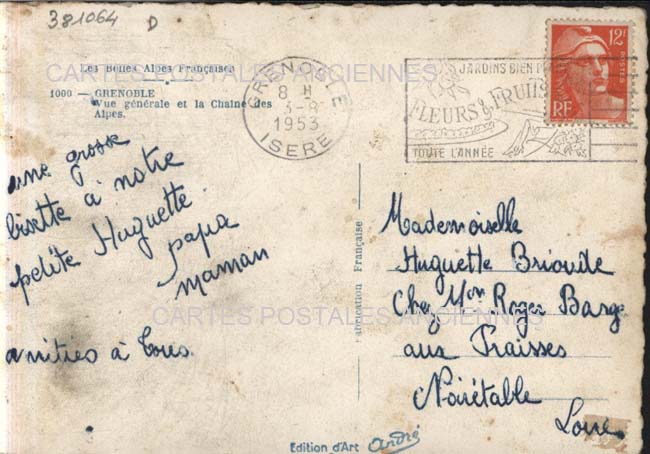 381064 D
Les Belles Alpes Françaises
1000 - GRENOBLE
Vue générale et la Chaîne des
Alpes.
CARTES POSTALES ANCIENNES
GRENOBLE
8 H
3-8
1953
ISERE
JARDINS BIEN
FLEURS & FRUITS
TOUTE L'ANNÉE
12F
RF
une grosse
bisette à notre
petite Huguette
papa
maman
amitiés à tous.
CARTES POSTALES ANCIENNES
Fabrication Française
Mademoiselle
Huguette Briovile
Chez Mon Roger Barge
aux Fraisses
Noirétable
Loire
Edition d'Art André